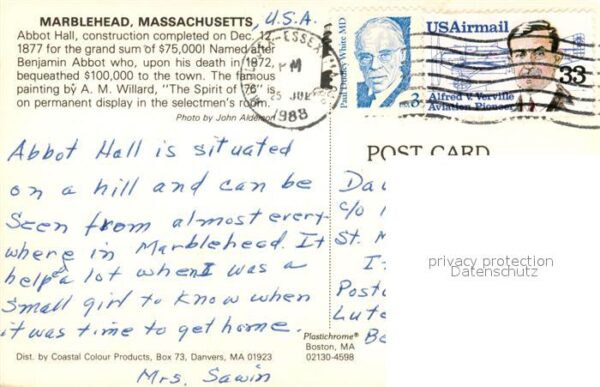 MARBLEHEAD, MASSACHUSETTS, U.S.A.
Abbot Hall, construction completed on Dec. 12,
1877 for the grand sum of $75,000! Named after
Benjamin Abbot who, upon his death in 1872,
bequeathed $100,000 to the town. The famous
painting by A. M. Willard, "The Spirit of 76" is
on permanent display in the selectmen's room.
Photo by John Alderson
ESSEX
PM
25 JUL
1988
Paul Dudley White MD
3
USAirmail
33
Alfred V. Verville
Aviation Pioneer
POST CARD
Abbot Hall is situated
on a hill and can be
seen from almost every-
where in Marblehead. It
helped a lot when I was a
small girl to know when
it was time to get home.
Mrs. Sawin
Da
c/o
St. M
I
Posta
Lute
B
privacy protection
Datenschutz
Plastichrome®
Boston, MA
02130-4598
Dist. by Coastal Colour Products, Box 73, Danvers, MA 01923